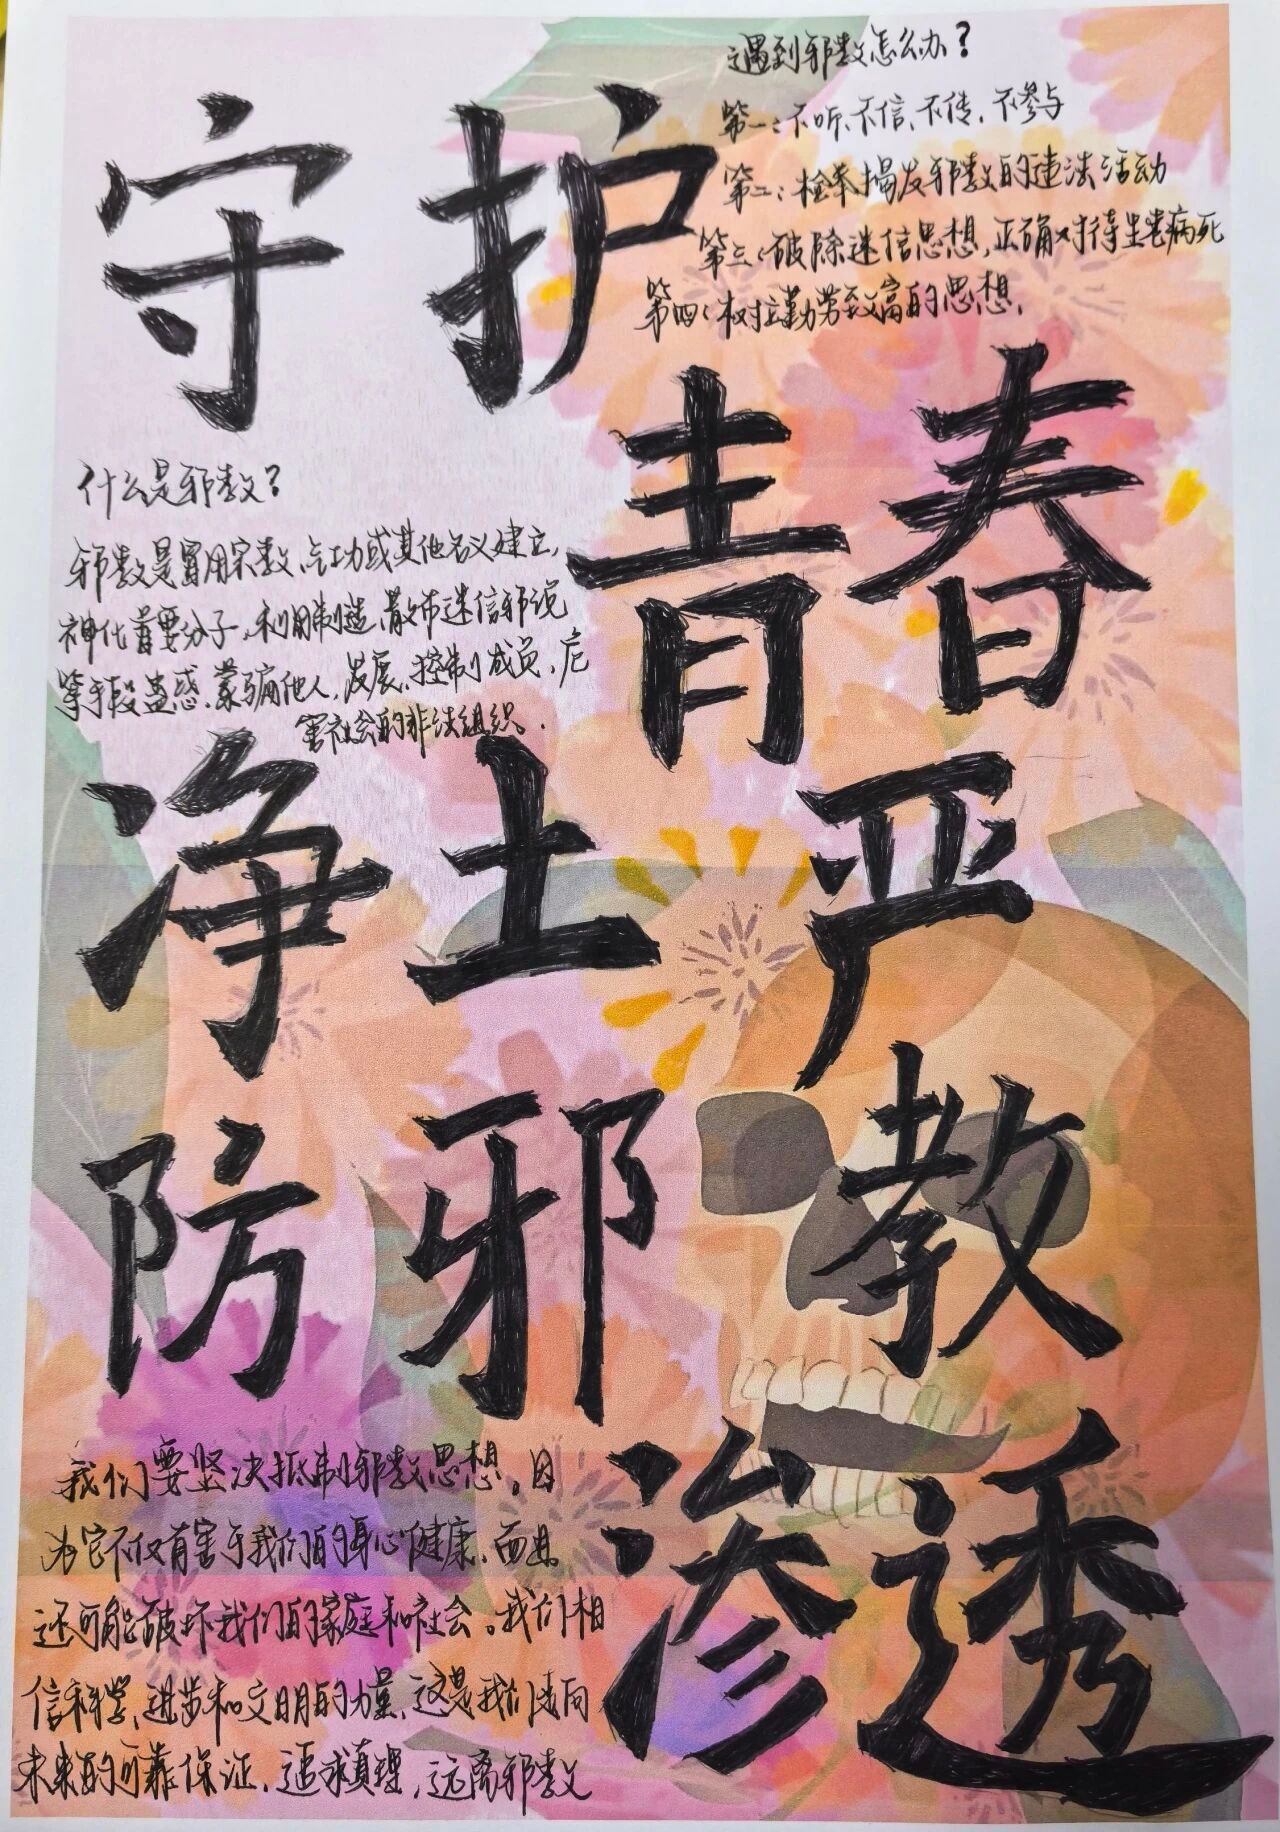 遇到邪教怎么办？
第一：不听、不信、不传、不参与
第二：检举揭发邪教的违法活动
第三：破除迷信思想，正确对待生老病死
第四：树立勤劳致富的思想.
守护
青春
什么是邪教？
邪教是冒用宗教、气功或其他名义建立，
神化首要分子，利用制造、散布迷信邪说
等手段蛊惑、蒙骗他人，发展、控制成员，危
害社会的非法组织。
净土严
防邪教
渗透
我们要坚决抵制邪教思想。因
为它不仅有害于我们的身心健康、而且
还可能破坏我们的家庭和社会。我们相
信科学、进步和文明的力量、这是我们走向
未来的可靠保证，追求真理，远离邪教